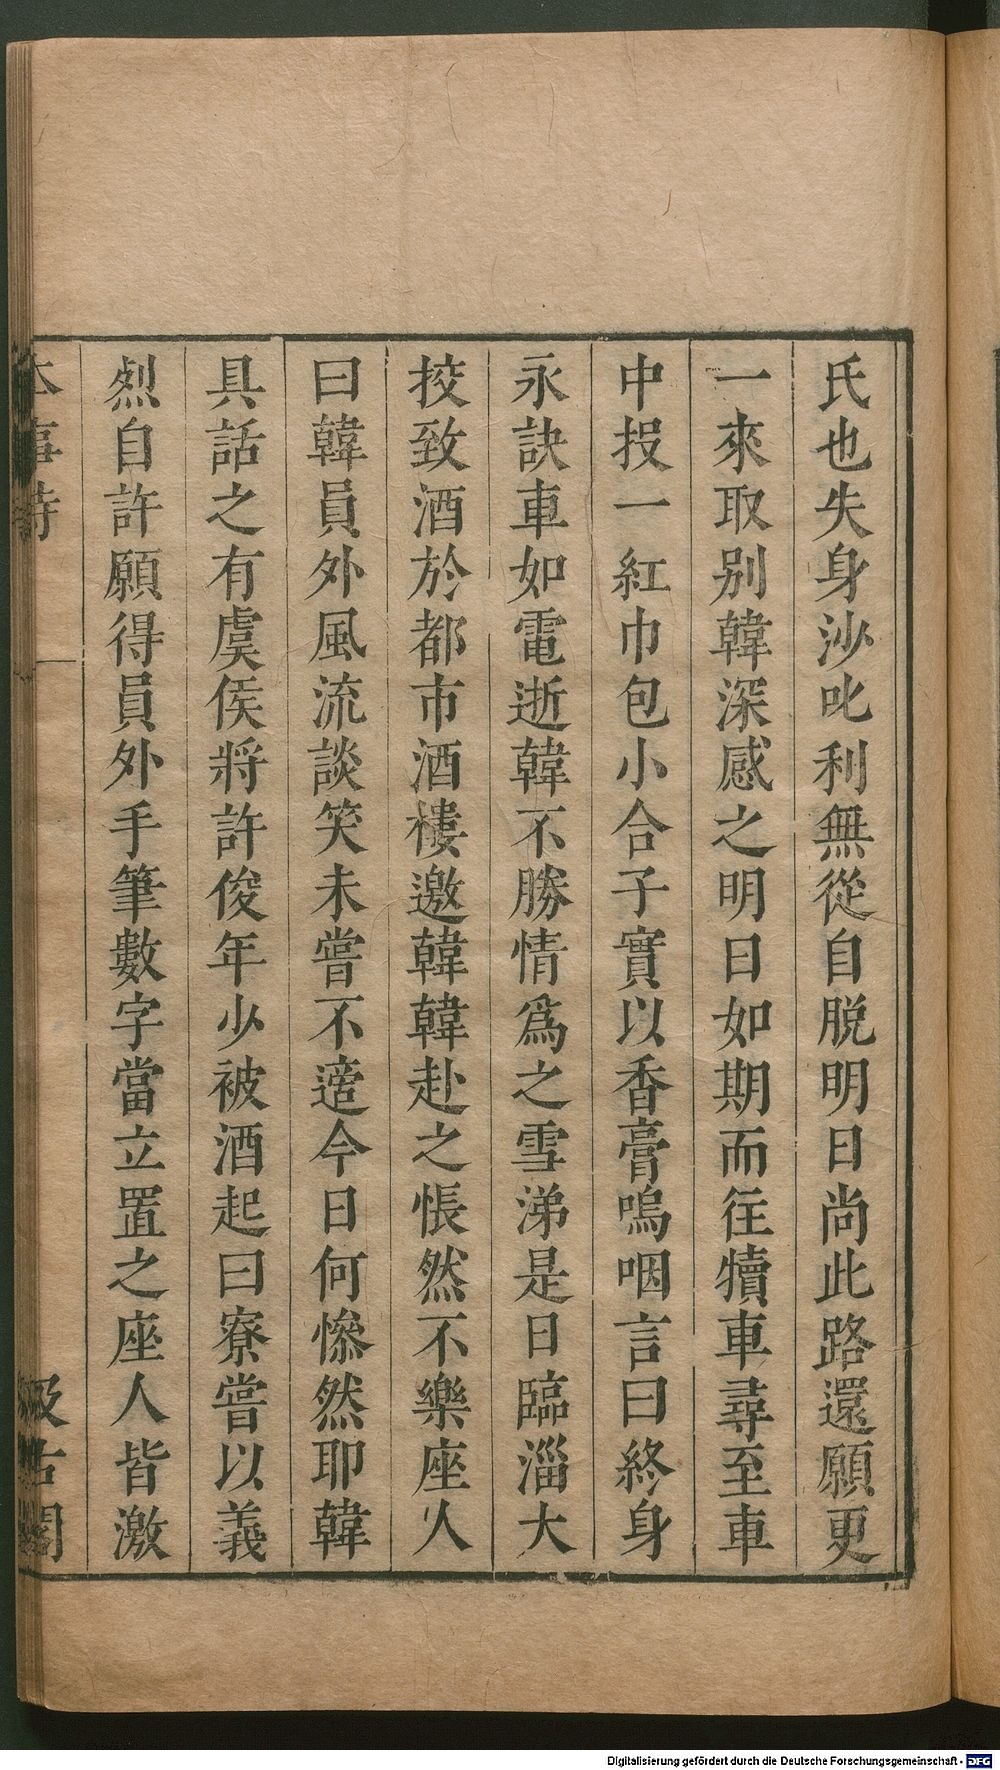 氏也失身沙叱利無從自脫明日尚此路還願更
一來取别韓深感之明日如期而往犢車尋至車
中投一紅巾包小合子實以香膏嗚咽言曰終身
永訣車如電逝韓不勝情爲之雪涕是日臨淄大
挍致酒於都市酒樓邀韓韓赴之悵然不樂座人
曰韓員外風流談笑未嘗不適今日何慘然耶韓
具話之有虞侯將許俊年少被酒起曰寮嘗以義
烈自許願得員外手筆數字當立置之座人皆激
本事詩 一 汲古閣
Digitalisierung gefördert durch die Deutsche Forschungsgemeinschaft - DFG